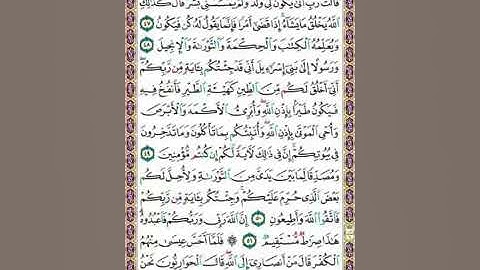 قَالَتْ رَبِّ أَنَّىٰ يَكُونُ لِي وَلَدٌ وَلَمْ يَمْسَسْنِي بَشَرٌ قَالَ كَذَٰلِكِ
اللَّهُ يَخْلُقُ مَا يَشَاءُ إِذَا قَضَىٰ أَمْرًا فَإِنَّمَا يَقُولُ لَهُ كُن فَيَكُونُ ٤٧
وَيُعَلِّمُهُ الْكِتَابَ وَالْحِكْمَةَ وَالتَّوْرَاةَ وَالْإِنجِيلَ ٤٨
وَرَسُولًا إِلَىٰ بَنِي إِسْرَائِيلَ أَنِّي قَدْ جِئْتُكُم بِآيَةٍ مِّن رَّبِّكُمْ
أَنِّي أَخْلُقُ لَكُم مِّنَ الطِّينِ كَهَيْئَةِ الطَّيْرِ فَأَنفُخُ فِيهِ
فَيَكُونُ طَيْرًا بِإِذْنِ اللَّهِ وَأُبْرِئُ الْأَكْمَهَ وَالْأَبْرَصَ
وَأُحْيِ الْمَوْتَىٰ بِإِذْنِ اللَّهِ وَأُنَبِّئُكُم بِمَا تَأْكُلُونَ وَمَا تَدَّخِرُونَ
فِي بُيُوتِكُمْ إِنَّ فِي ذَٰلِكَ لَآيَةً لَّكُمْ إِن كُنتُم مُّؤْمِنِينَ ٤٩
وَمُصَدِّقًا لِّمَا بَيْنَ يَدَيَّ مِنَ التَّوْرَاةِ وَلِأُحِلَّ لَكُم
بَعْضَ الَّذِي حُرِّمَ عَلَيْكُمْ وَجِئْتُكُم بِآيَةٍ مِّن رَّبِّكُمْ
فَاتَّقُوا اللَّهَ وَأَطِيعُونِ ٥٠ إِنَّ اللَّهَ رَبِّي وَرَبُّكُمْ فَاعْبُدُوهُ
هَٰذَا صِرَاطٌ مُّسْتَقِيمٌ ٥١ ۞ فَلَمَّا أَحَسَّ عِيسَىٰ مِنْهُمُ
الْكُفْرَ قَالَ مَنْ أَنصَارِي إِلَى اللَّهِ قَالَ الْحَوَارِيُّونَ نَحْنُ